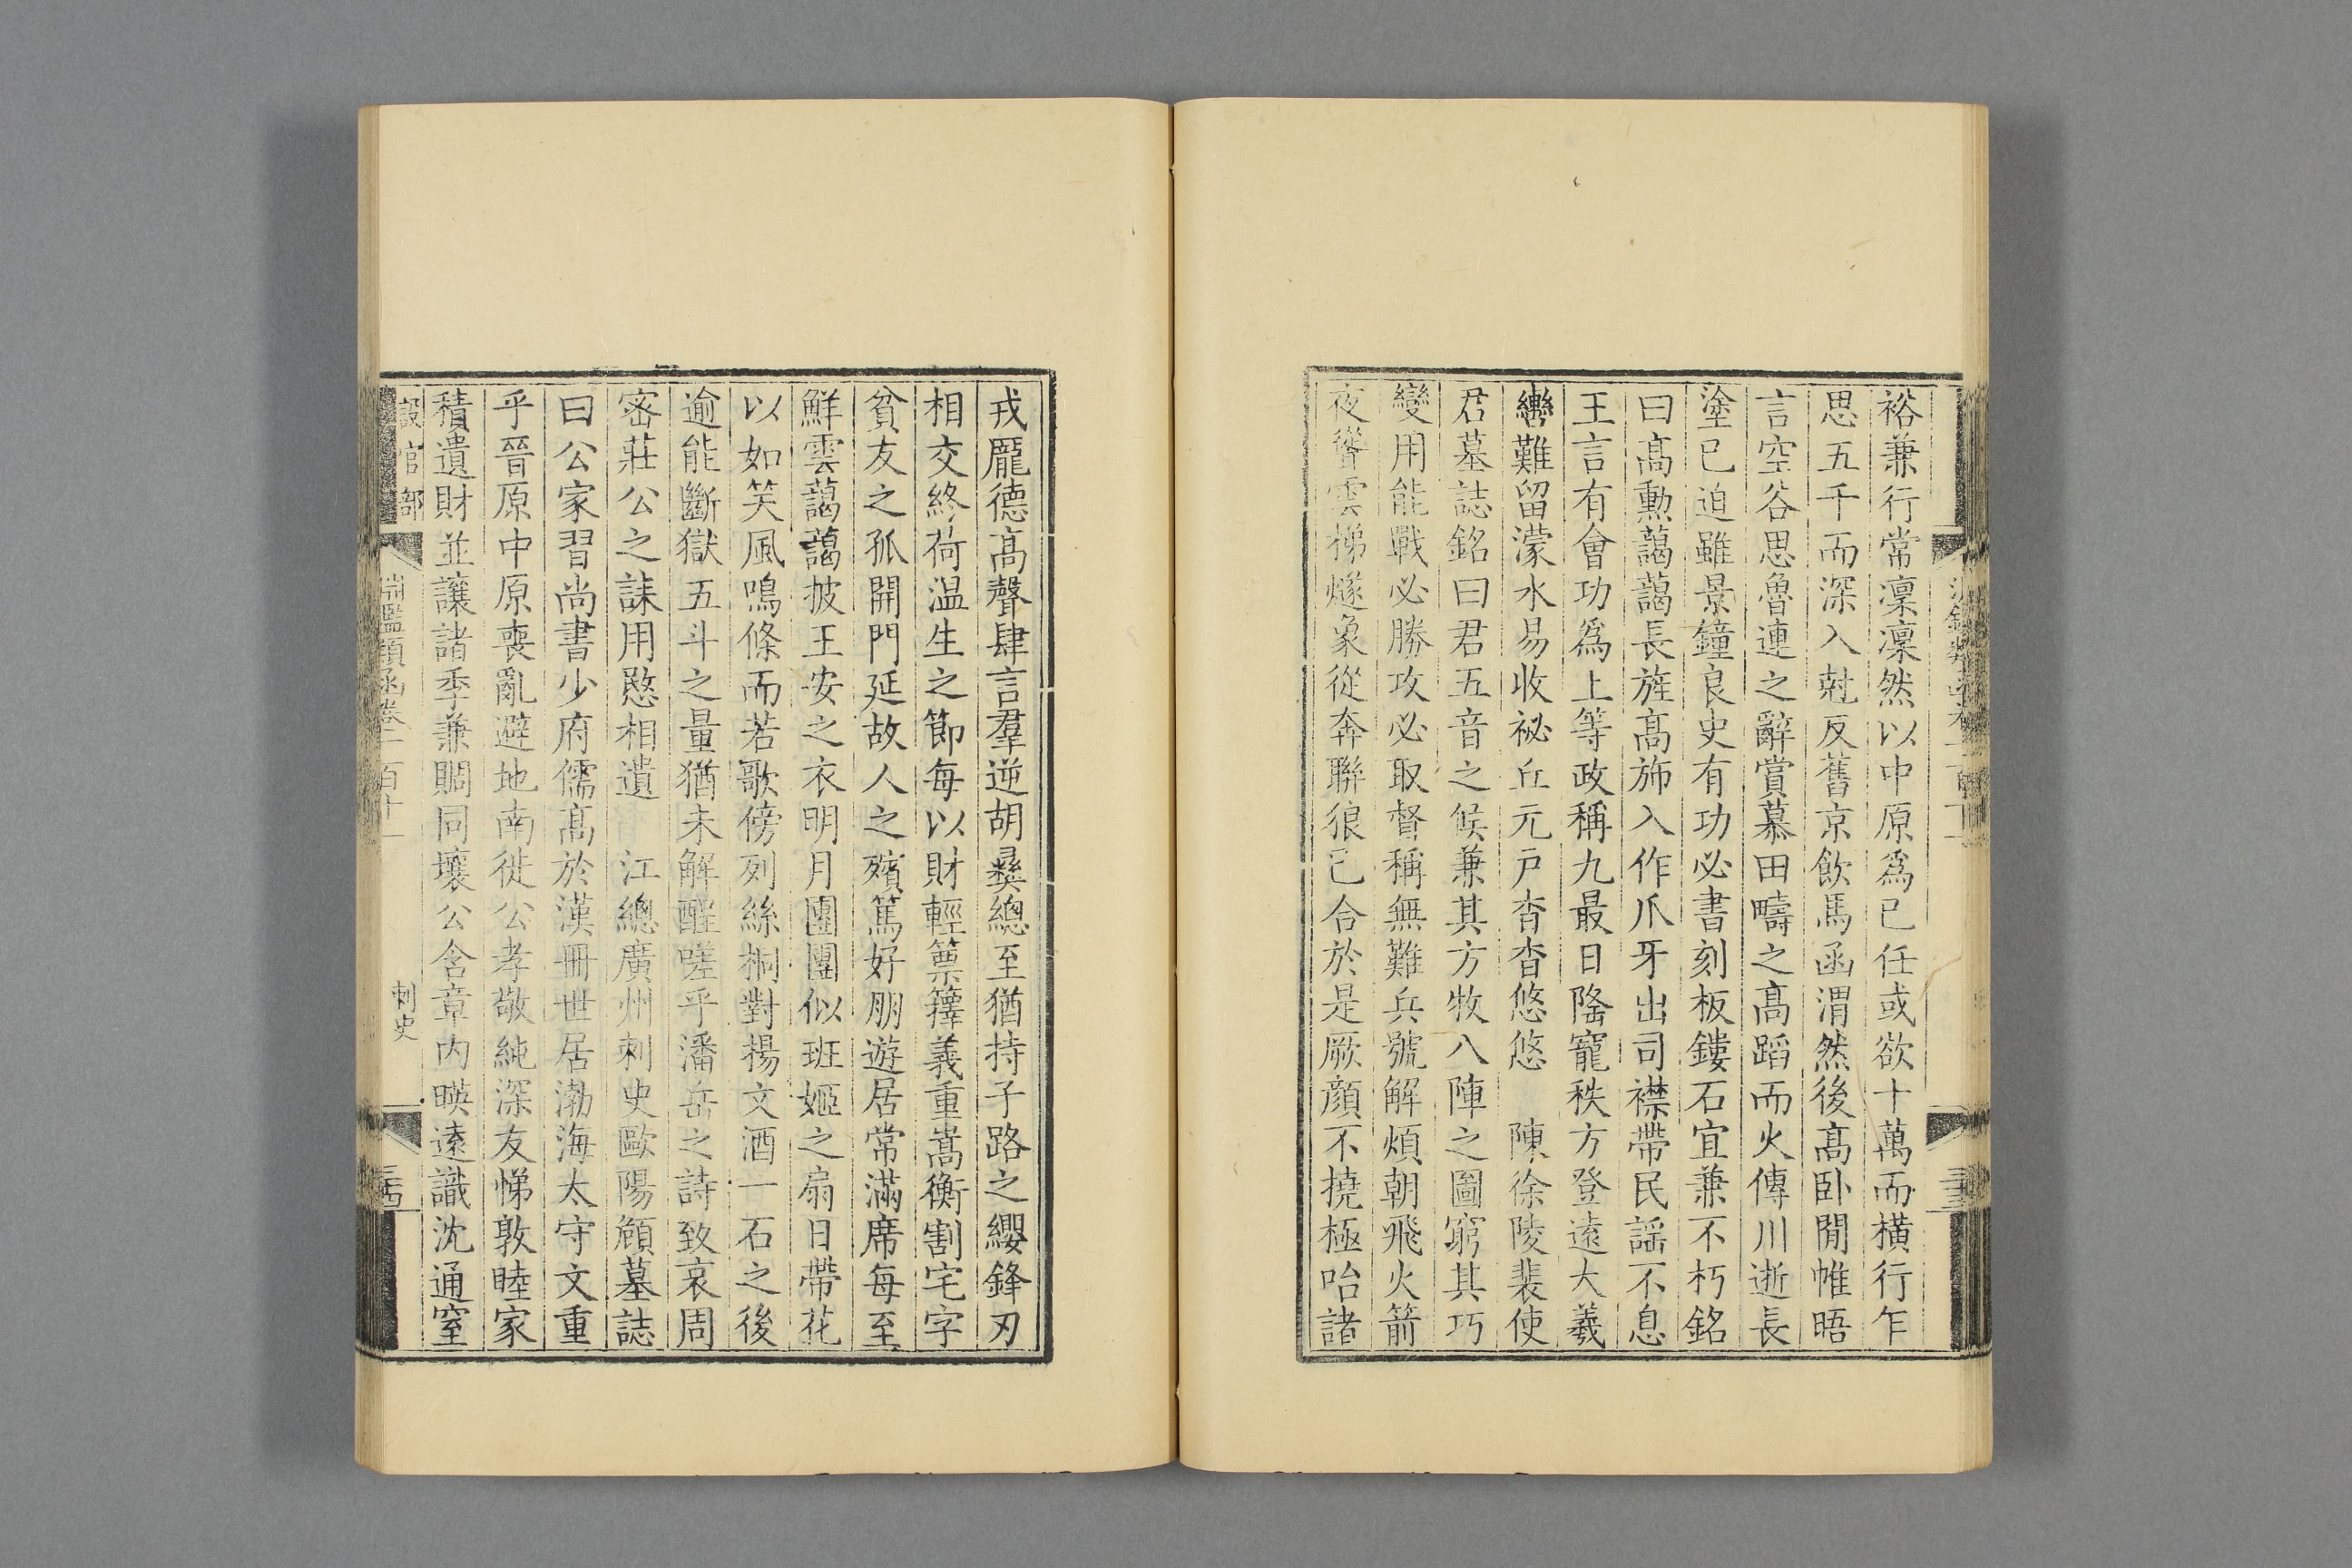 裕兼行常凜凜然以中原爲已任或欲十萬而橫行乍
思五千而深入剋反舊京飲馬函渭然後髙卧閒帷晤
言空谷思魯連之辭賞慕田疇之髙蹈而火傳川逝長
塗已迫雖景鐘良史有功必書刻板鏤石宜兼不朽銘
曰髙勲藹藹長旌髙斾入作爪牙出司襟帶民謡不息
王言有會功爲上等政稱九最日隆寵秩方登逺大羲
轡難留濛水易收祕丘元戸杳杳悠悠　陳徐陵裴使
君墓誌銘曰君五音之候兼其方牧八陣之圖窮其巧
變用能戰必勝攻必取督稱無難兵號解煩朝飛火箭
夜聳雲梯燧象從奔聯狼已合於是厥顔不撓極咍諸
戎龎德髙聲肆言羣逆胡彛總至猶持子路之纓鋒刃
相交終荷温生之節每以財輕篻籜義重嵩衡割宅字
貧友之孤開門延故人之殯篤好朋遊居常滿席每至
鮮雲藹藹披王安之衣明月團團似班姬之扇日帶花
以如笑風鳴條而若歌傍列絲桐對揚文酒一石之後
逾能斷獄五斗之量猶未解酲嗟乎潘岳之詩致哀周
宻莊公之誄用愍相遺　江總廣州刺史歐陽頠墓誌
曰公家習尚書少府儒髙於漢冊世居渤海太守文重
乎晉原中原喪亂避地南徙公孝敬純深友悌敦睦家
積遺財並讓諸季兼賙同壤公含章内暎逺識沈通窒
設官部
淵鑑類函卷一百十一
刺史